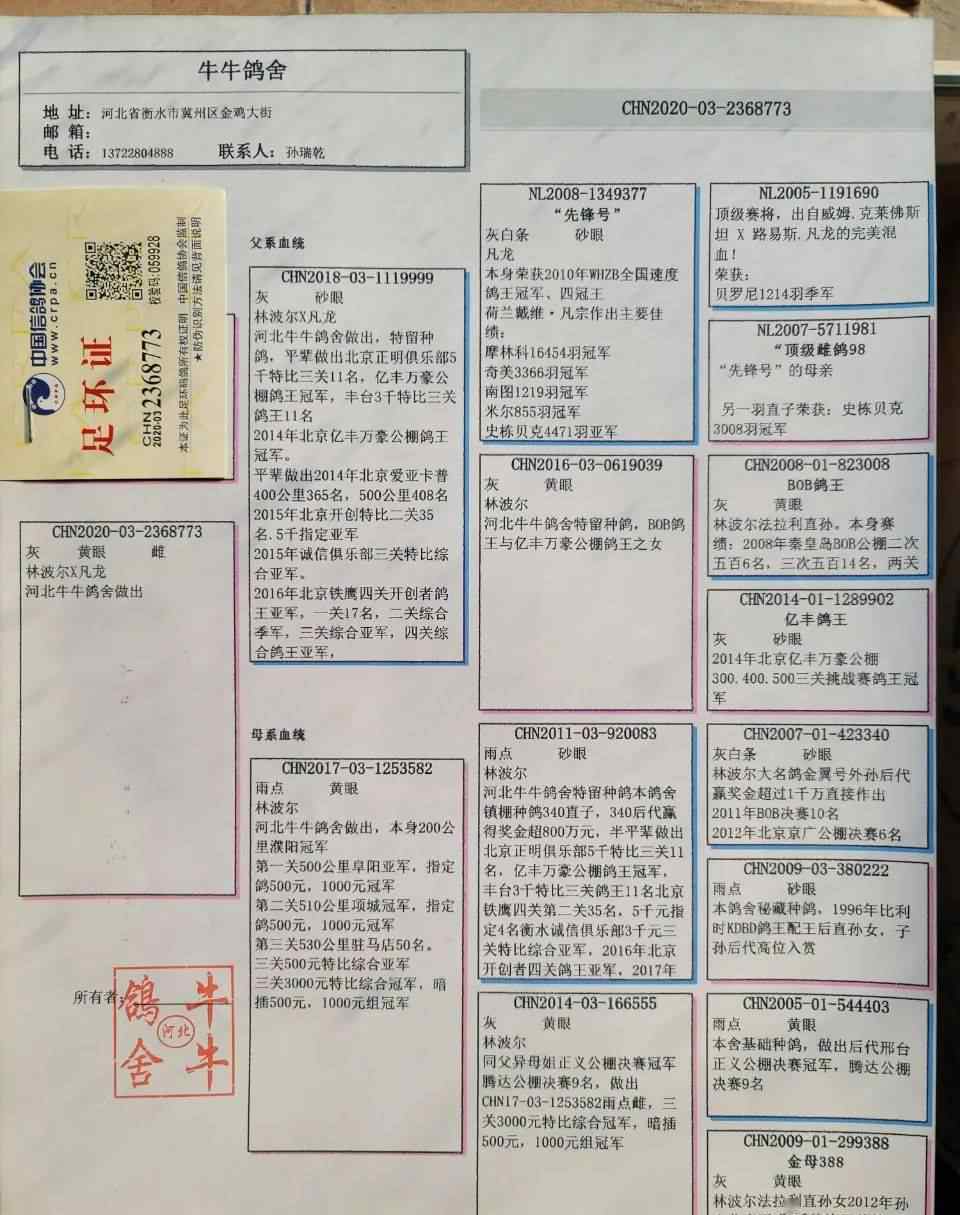 牛牛鸽舍
地 址：河北省衡水市冀州区金鸡大街
邮 箱：
电 话：13722804888 联系人：孙瑞乾
CHN2020-03-2368773
中国信鸽协会
www.crpa.cn
足 环 证
CHN
2020-03 2368773
校验码:059928
本证为此足环码鸽所有权证明 中国信鸽协会监制
★防伪识别方法请见背面说明
CHN2020-03-2368773
灰 黄眼 雌
林波尔X凡龙
河北牛牛鸽舍做出
所有者：
牛牛
鸽舍
河北
父系血统
CHN2018-03-1119999
灰 砂眼
林波尔X凡龙
河北牛牛鸽舍做出，特留种
鸽，平辈做出北京正明俱乐部5
千特比三关11名，亿丰万豪公
棚鸽王冠军，丰台3千特比三关
鸽王11名
2014年北京亿丰万豪公棚鸽王
冠军。
平辈做出2014年北京爱亚卡普
400公里365名，500公里408名
2015年北京开创特比二关35
名.5千指定亚军
2015年诚信俱乐部三关特比综
合亚军。
2016年北京铁鹰四关开创者鸽
王亚军，一关17名，二关综合
季军，三关综合亚军，四关综
合鸽王亚军，
母系血统
CHN2017-03-1253582
雨点 黄眼
林波尔
河北牛牛鸽舍做出，本身200公
里濮阳冠军
第一关500公里阜阳亚军，指定
鸽500元，1000元冠军
第二关510公里项城冠军，指定
鸽500元，1000元冠军
第三关530公里驻马店50名。
三关500元特比综合亚军
三关3000元特比综合冠军，暗
插500元，1000元组冠军
NL2008-1349377
“先锋号”
灰白条 砂眼
凡龙
本身荣获2010年WHZB全国速度
鸽王冠军、四冠王
荷兰戴维·凡宗作出主要佳
绩：
摩林科16454羽冠军
奇美3366羽冠军
南图1219羽冠军
米尔855羽冠军
史栋贝克4471羽亚军
CHN2016-03-0619039
灰 黄眼
林波尔
河北牛牛鸽舍特留种鸽，BOB鸽
王与亿丰万豪公棚鸽王之女
CHN2011-03-920083
雨点 砂眼
林波尔
河北牛牛鸽舍特留种鸽本鸽舍
镇棚种鸽340直子，340后代赢
得奖金超800万元，半平辈做出
北京正明俱乐部5千特比三关11
名，亿丰万豪公棚鸽王冠军，
丰台3千特比三关鸽王11名北京
铁鹰四关第二关35名，5千元指
定4名衡水诚信俱乐部3千元三
关特比综合亚军，2016年北京
开创者四关鸽王亚军，2017年
CHN2014-03-166555
灰 黄眼
林波尔
同父异母姐正义公棚决赛冠军
腾达公棚决赛9名，做出
CHN17-03-1253582雨点雌，三
关3000元特比综合冠军，暗插
500元，1000元组冠军
NL2005-1191690
顶级赛将，出自威姆.克莱佛斯
坦 X 路易斯.凡龙的完美混
血！
荣获：
贝罗尼1214羽季军
NL2007-5711981
“顶级雌鸽98
“先锋号”的母亲
另一羽直子荣获：史栋贝克
3008羽冠军
CHN2008-01-823008
BOB鸽王
灰 黄眼
林波尔法拉利直孙。本身赛
绩：2008年秦皇岛BOB公棚二次
五百6名，三次五百14名，两关
CHN2014-01-1289902
亿丰鸽王
灰 砂眼
2014年北京亿丰万豪公棚
300.400.500三关挑战赛鸽王冠
军
CHN2007-01-423340
灰白条 砂眼
林波尔大名鸽金翼号外孙后代
赢奖金超过1千万直接作出
2011年BOB决赛10名
2012年北京京广公棚决赛6名
CHN2009-03-380222
雨点 砂眼
本鸽舍秘藏种鸽，1996年比利
时KDBD鸽王配王后直孙女，子
孙后代高位入赏
CHN2005-01-544403
雨点 黄眼
本舍基础种鸽，做出后代邢台
正义公棚决赛冠军，腾达公棚
决赛9名
CHN2009-01-299388
金母388
灰 黄眼
林波尔法拉利直孙女2012年孙